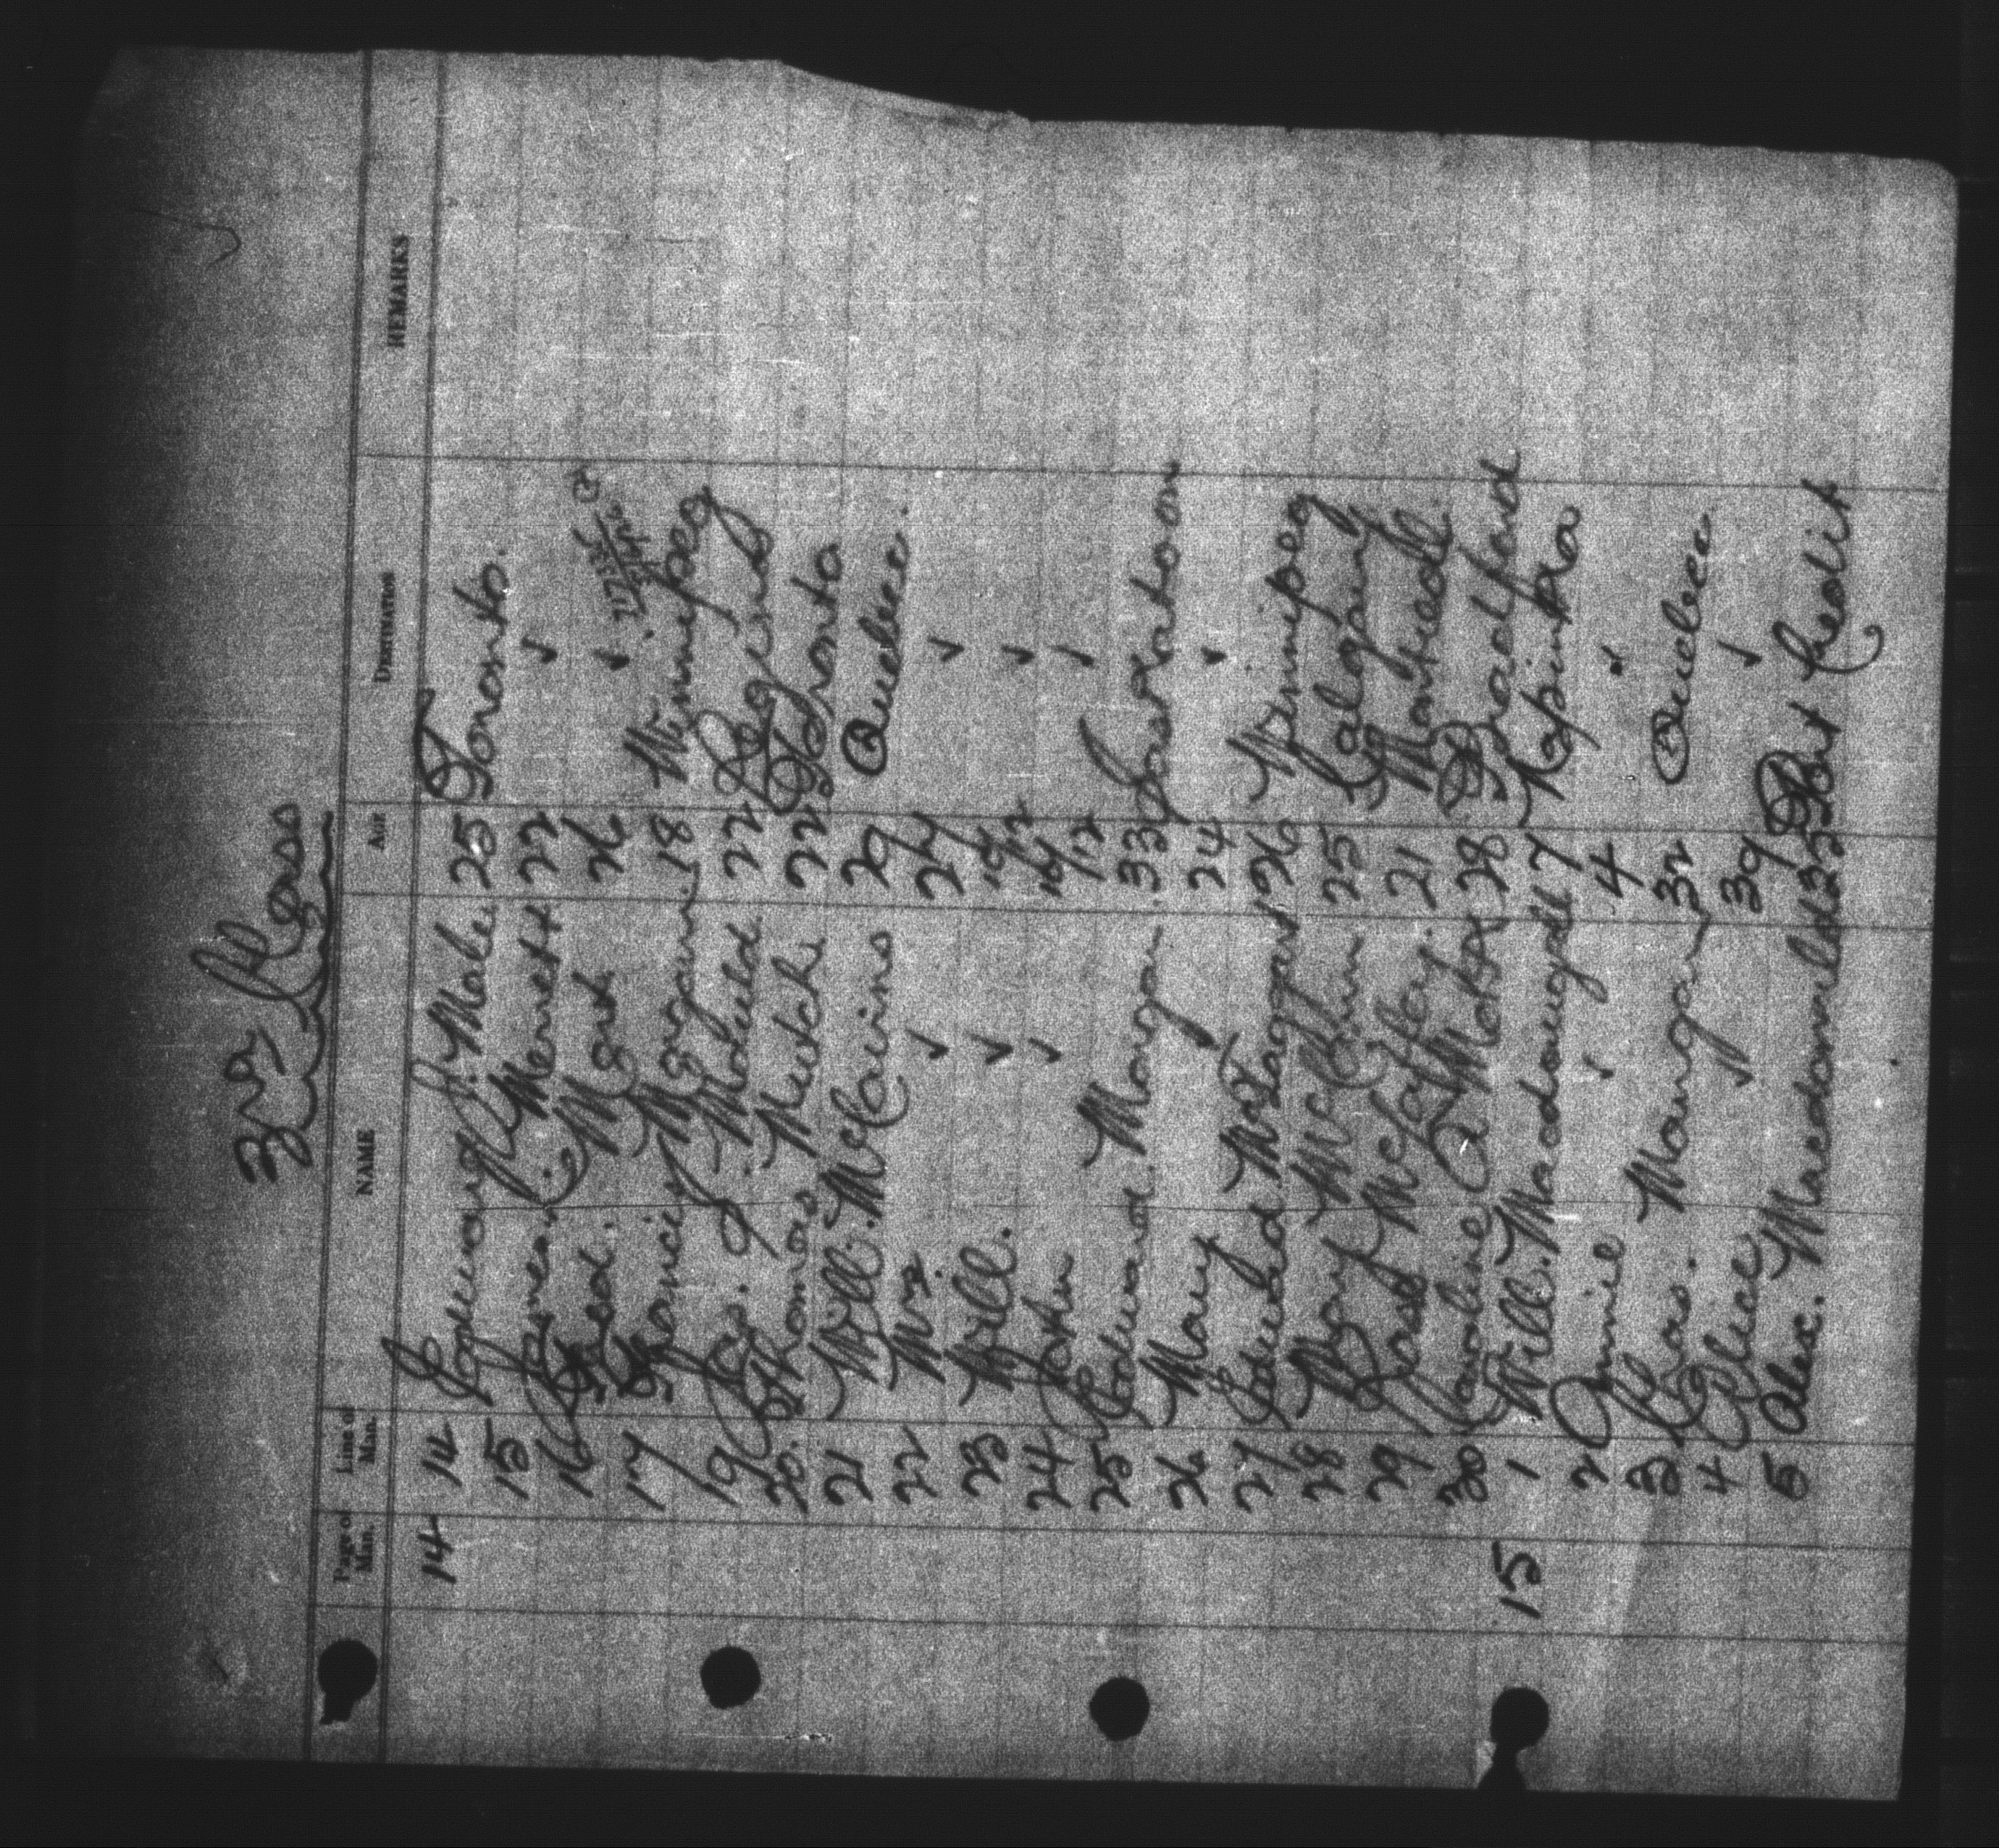 3rd Class
Page of Man. Line of Man. NAME AGE DESTINATION REMARKS
14 14 Edward J. Male 25 Toronto.
15 Merrett 22 ✓
16 Fred. 26 ✓
17 Morgan 18 Winnipeg
19 22 Regina
20. Thomas Mutch 22 Toronto
21 Will. McCairns 29 Quebec.
22 Mrs. ✓ 24 ✓
23 Will. ✓ ✓
24 John ✓ ✓
25 Edward Morgan. 33 Saskatoon
26 Mary ✓ 24 ✓
27 Edward McTaggart 26 Winnipeg
28 Mary 25 Calgary
29 Rose McCaffery. 21 Montreal.
30 Caroline 28 Bradford
15 1 Will. Macdougall 7 Napinka
2 Annie ✓ 4 ✓
3 Chas. Mangan 32 Quebec.
4 Alice ✓ 39 ✓
5 Alex. Macdonald 23 Port Credit